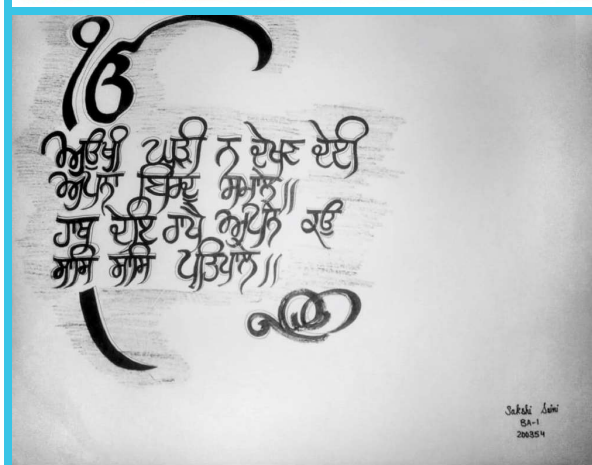 ੴ
ਅਉਖੀ ਘੜੀ ਨ ਦੇਖਣ ਦੇਈ
ਅਪਨਾ ਬਿਰਦੁ ਸਮਾਲੇ॥
ਹਾਥ ਦੇਇ ਰਾਖੈ ਅਪਨੇ ਕਉ
ਸਾਸਿ ਸਾਸਿ ਪ੍ਰਤਿਪਾਲੇ॥
Sakshi Saini
BA-I
200354